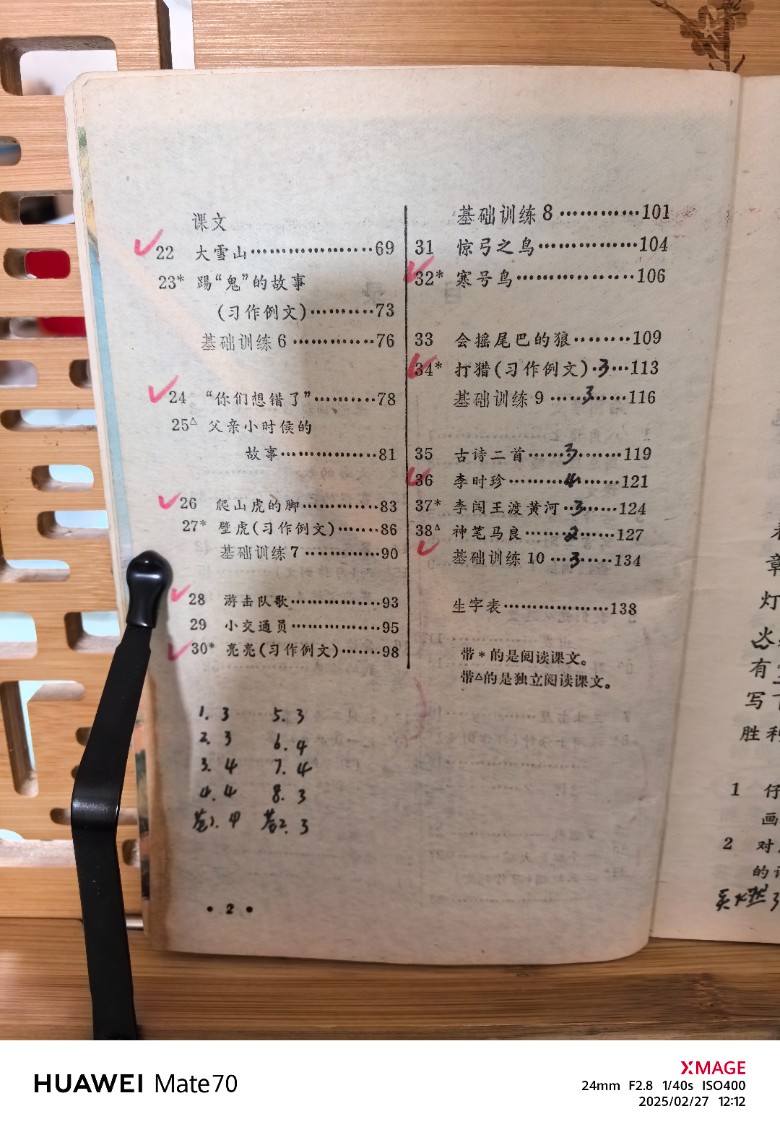 课文
22 大雪山…………………69
23* 踢“鬼”的故事
(习作例文)…………73
基础训练 6 ……………76
24 “你们想错了”…………78
25△ 父亲小时候的
故事………………81
26 爬山虎的脚……………83
27* 壁虎(习作例文)………86
基础训练 7 ……………90
28 游击队歌………………93
29 小交通员………………95
30* 亮亮(习作例文)………98
1. 3 5. 3
2. 3 6. 4
3. 4 7. 4
4. 4 8. 3
1. 4 2. 3
• 2 •
基础训练 8 …………101
31 惊弓之鸟………………104
32* 寒号鸟…………………106
33 会摇尾巴的狼………109
34* 打猎(习作例文)·3…113
基础训练 9 ……3……116
35 古诗二首……3………119
36 李时珍………4………121
37* 李闯王渡黄河…3……124
38△ 神笔马良……2……127
基础训练 10 …3……134
生字表…………………138
带 * 的是阅读课文。
带△的是独立阅读课文。
章
灯
有
写
胜利
1 仔
画
2 对
的
HUAWEI Mate70
XMAGE
24mm F2.8 1/40s ISO400
2025/02/27 12:12